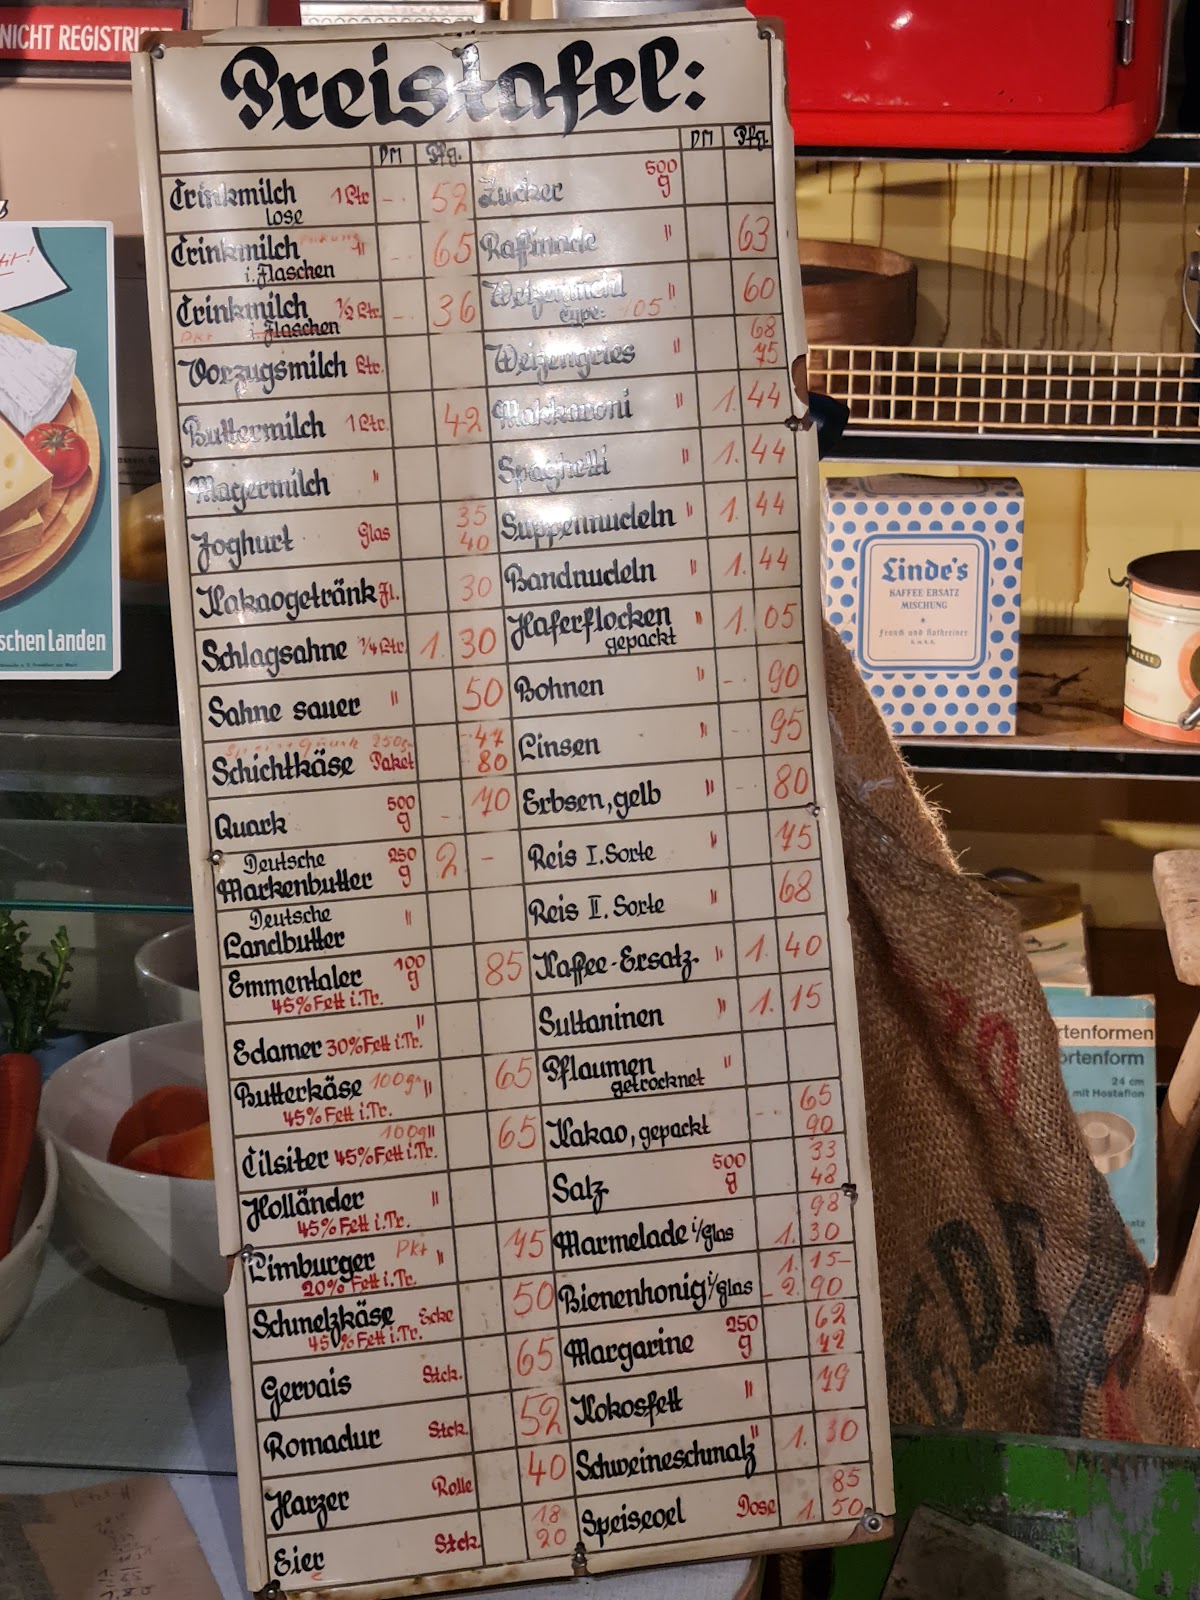 NICHT REGISTRIE
Preistafel:
DM Pfg.
Trinkmilch 1 Ltr. -. 52
lose
Trinkmilch " -. 65
i. Flaschen
Trinkmilch ½ Ltr. -. 36
Pkt i. Flaschen
Vorzugsmilch Ltr.
Buttermilch 1 Ltr. 42
Magermilch "
Joghurt Glas 35
40
Kakaogetränk Fl. 30
Schlagsahne ¼ Ltr. 1. 30
Sahne sauer " 50
250gr 47
Schichtkäse Paket 80
Quark 500 g - 70
Deutsche
Markenbutter 250 g 2 -
Deutsche
Landbutter "
Emmentaler 100 g 85
45% Fett i.Tr.
Edamer 30% Fett i.Tr. "
Butterkäse 100gr " 65
45% Fett i.Tr.
100g "
Tilsiter 45% Fett i.Tr. 65
Holländer "
45% Fett i.Tr.
Limburger Pkt " 75
20% Fett i.Tr.
Schmelzkäse Ecke 50
45% Fett i.Tr.
Gervais Stck. 65
Romadur Stck. 52
Harzer Rolle 40
Eier Stck. 18
20
DM Pfg.
Zucker 500 g
Raffinade " 63
Weizenmehl " 60
Type: 405
Weizengries " 68
75
Makkaroni " 1. 44
Spaghetti " 1. 44
Suppennudeln " 1. 44
Bandnudeln " 1. 44
Haferflocken " 1. 05
gepackt
Bohnen " -. 90
Linsen " 95
Erbsen, gelb " -. 80
Reis I. Sorte " 75
Reis II. Sorte " 68
Kaffee-Ersatz. " 1. 40
Sultaninen " 1. 15
Pflaumen "
getrocknet
Kakao, gepackt -. 65
90
Salz 500 g 33
48
Marmelade i/Glas 98
1. 30
Bienenhonig i/Glas 1. 15-
2. 90
Margarine 250 g 62
72
Kokosfett " 79
Schweineschmalz " 1. 30
Speiseoel Dose 85
1. 50
schen Landen
Linde's
KAFFEE ERSATZ
MISCHUNG
Franck und Kathreiner
G.m.b.H.
rtenformen
ortenform
24 cm
mit Hostaflon